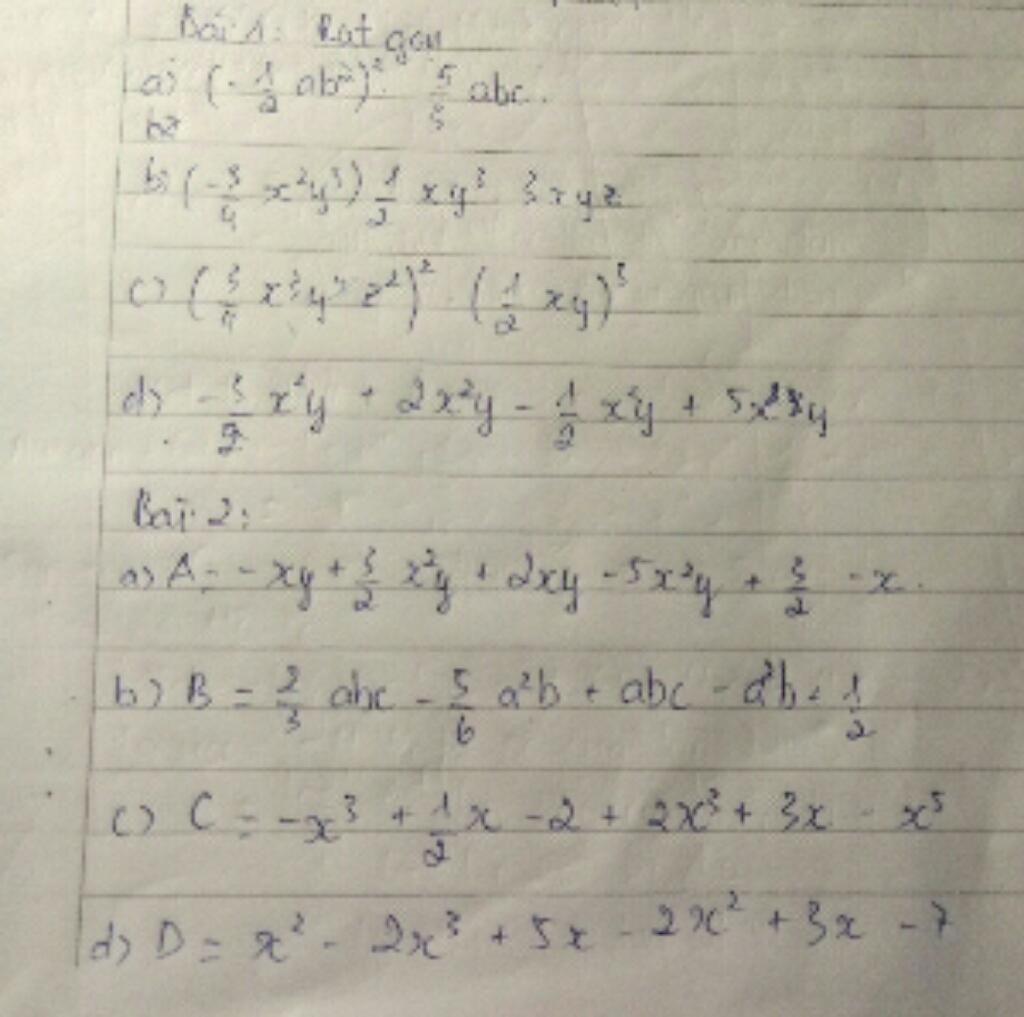 Bài 1: Rút gọn
a) (-1/2 ab²)² . 5/3 abc.
b) (-3/4 x²y³) 1/2 xy³ 3xyz
c) (3/4 x³y³z²)² . (1/2 xy)³
d) -3/2 x²y + 2x²y - 1/2 x²y + 5x y
Bài 2:
a) A = -xy + 3/2 x²y + 2xy - 5x²y + 3/2 - x.
b) B = 2/3 abc - 5/6 a²b + abc - a²b + 1/2
c) C = -x³ + 1/2 x - 2 + 2x³ + 3x - x⁵
d) D = x² - 2x³ + 5x - 2x² + 3x - 7